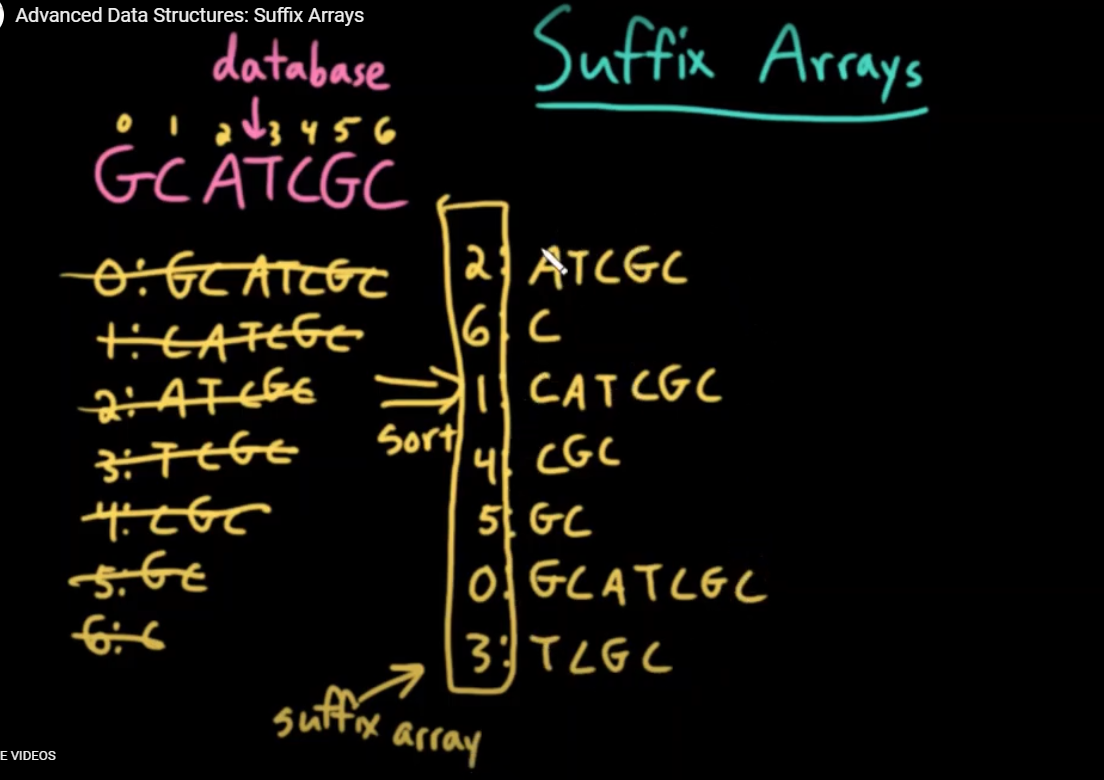 Advanced Data Structures: Suffix Arrays
Suffix Arrays
database
0 1 2 3 4 5 6
GCATCGC
0: GCATCGC
1: CATCGC
2: ATCGC
3: TCGC
4: CGC
5: GC
6: C
Sort
2: ATCGC
6: C
1: CATCGC
4: CGC
5: GC
0: GCATCGC
3: TCGC
suffix array
E VIDEOS